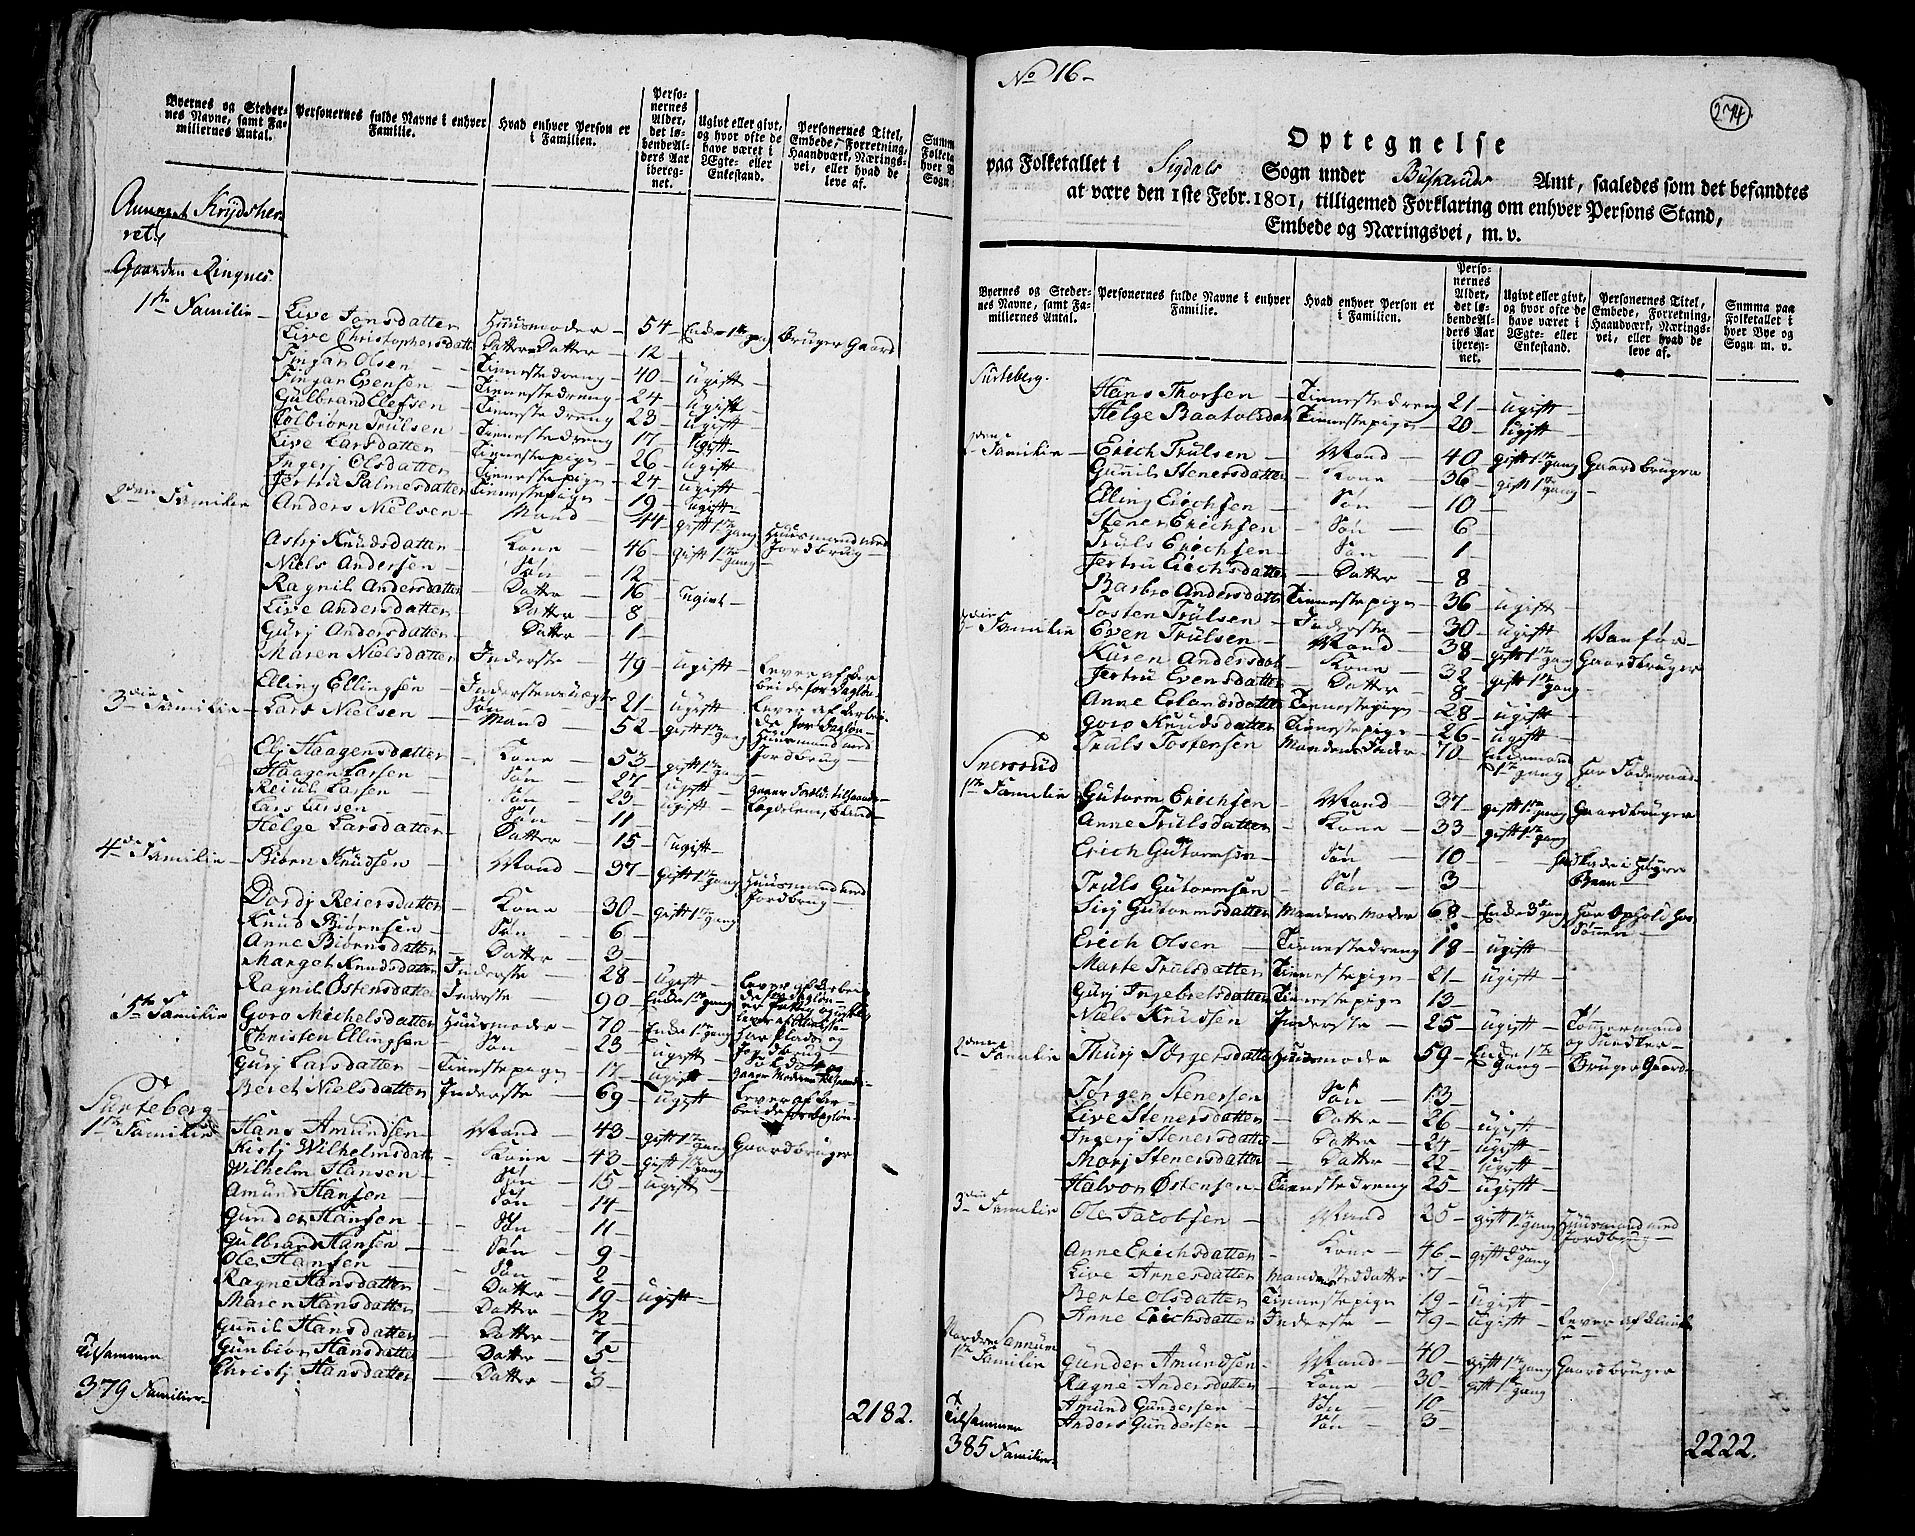 Byernes og Steder-
nes Navne, samt Fa-
miliernes Antal.
Personernes fulde Navne i enhver
Familie.
Hvad enhver Person er
i Familien.
Perso-
nernes
Alder,
det lø-
bende Al-
ders Aar
iberegnet.
Ugivt eller givt,
og hvor ofte de
have været i
Ægte- eller
Enkestand.
Personernes Titel,
Embede, Forretning,
Haandværk, Nærings-
vei, eller hvad de
leve af.
Annexet Krydsher
ret
Gaarden Ringnes
1te Familie - Live Jonsdatter Huusmoder - 54 - Enke 1te g Bruger Gaard
Live Christophersdatt Datter Datter - 12 -
Finjar Olsen - Tienestedreng - 40 - ugift -
Finjar Evensen - Tienestedreng - 24 - ugift -
Gulbrand Elefsen - Tienestedreng - 23 - ugift -
Colbiørn Trulsen - Tienestedreng 17 - ugift -
Live Larsdatter - Tienestepige - 26 - ugift -
Ingerj Olsdatter - Tienestepige - 24 - ugift -
Jertru Palmesdatter Tienestepige - 19 - ugift -
2den Familie Anders Nielsen - Mand - 44 - gift 1te gang Huusmand med
Jordbrug -
Astrj Knudsdatter - Kone - 46 - gift 1te gang -
Niels Andersen - Søn - 12 -
Ragnil Andersdatter - Datter - 16 - ugivt -
Live Andersdatter - Datter - 8 -
Gurj Andersdatter - Datter - 1 -
Maren Nielsdatter Inderste - 49 - ugift - Lever af Ar
beide for Dagløn -
Elling Ellingsen - Inderstens uægte Søn - 21 - ugift - Lever af Arbei
de for Dagløn -
3die Familie - Lars Nielsen - Mand - 52 - gift 1te gang Huusmand med
Jordbrug -
Elj Haagensdatter - Kone - 53 - gift 1te gang -
Haagen Larsen - Søn - 27 - ugift -
Reiul Larsen - Søn - 23 - ugift -
Lars Larsen - Søn - 11 -
Helge Larsdatter - Datter - 15 - ugift -
4de Familie - Biørn Knudsen - Mand - 37 - gift 1te gang Huusmand med
Jordbrug -
Dordj Reiersdatter - Kone - 30 - gift 1te gang
Knud Biørnsen - Søn - 6 -
Anne Biørnsdatter - Datter - 3 -
Marget Knudsdatter Inderste - 28 - ugift - Lever af Arbei
de for Dagløn -
Ragnil Østensdatter Inderste - 90 - Enke 1te gang
5te Familie Goro Michelsdatter Huusmoder - 70 - Enke 1te gang
Christen Ellingsen - Søn - 23 - ugift -
Gurj Larsdatter - Tienestepige - 17 - ugift -
Beret Nielsdatter Inderste - 69 - ugift - Lever af Ar-
beide for Dagløn -
Surteberg -
1te Familie Hans Amundsen - Mand - 43 - gift 1te gang Gaardbruger
Kistj Wilhelmsdatter - Kone - 43 - gift 1te gang
Wilhelm Hansen - Søn - 15 - ugift -
Amund Hansen - Søn - 14 -
Gunder Hansen - Søn - 11 -
Gulbrand Hansen - Søn - 9 -
Ole Hansen - Søn - 2 -
Ragne Hansdatter - Datter - 19 - ugift -
Maren Hansdatter - Datter - 12 -
Gunnil Hansdatter - Datter - 7 -
Gunbior Hansdatter - Datter - 5 -
Christj Hansdatter - Datter - 3 -
Tilsammen
379 Familier -
2182.
No 16 -
274
Optegnelse
paa Folketallet i Sigdals Sogn under Buskeruds Amt, saaledes som det befandtes
at være den 1ste Febr. 1801, tilligemed Forklaring om enhver Persons Stand,
Embede og Næringsvei, m. v.
Byernes og Steder-
nes Navne, samt Fa-
miliernes Antal.
Personernes fulde Navne i enhver
Familie.
Hvad enhver Person er
i Familien.
Perso-
nernes
Alder,
det lø-
bende Al-
ders Aar
iberegnet.
Ugivt eller givt,
og hvor ofte de
have været i
Ægte- eller
Enkestand.
Personernes Titel,
Embede, Forretning,
Haandværk, Nærings-
vei, eller hvad de
leve af.
Summa paa
Folketallet i
hver Bye og
Sogn m. v.
Surteberg.
Hans Thorsen - Tienestedreng 21 - ugift -
Helge Baatolsdat Tienestepige - 20 - ugift -
2den Familie - Erich Trulsen - Mand - 40 - gift 1te gang Gaardbruger
Gunnil Stenersdatter - Kone - 36 - gift 1te gang -
Elling Erichsen - Søn - 10 -
Stener Erichsen - Søn - 6
Truls Erichsen - Søn - 1
Jertru Erichsdatter - Datter - 8 -
Barbro Andersdatter Tienestepige - 36 - ugift -
Tosten Trulsen - Inderste - 30 - ugift - Vanfør -
3die Familie Even Trulsen - Mand - 38 - gift 1te gang Gaardbruger
Karen Andersdat - Kone - 32 - gift 1te gang -
Jertru Evensdatter - Datter - 8 -
Anne Erlandsdatter Tienestepige - 28 - ugift -
Goro Knudsdatter - Tienestepige - 26 - ugift -
Truls Tostensen Mandens Fader - 70 - Enkemand
1te gang - har Føderaad -
Snersrud
1te Familie Gutorm Erichsen - Mand - 37 - gift 1te gang Gaardbruger
Anne Trulsdatter - Kone - 33 - gift 1te gang
Erich Gutormsen - Søn - 10 -
Truls Gutormsen - Søn - 3 -
Sirj Gutormsdatter Mandens Moder 68 - Enke 3 gang har Ophold hos
Sønnen -
Erich Olsen - Tienestedreng - 18 - ugift
Marte Trulsdatter Tienestepige - 21 - ugift -
Gurj Ingebrelsdatter Tienestepige - 13 -
Niels Knudsen Inderste - 25 - ugift - Tømmermand
og Snedker -
2den Familie Thurj Tørgersdatter Huusmoder 59 - Enke 1te gang - Bruger Gaard -
Tørgen Stenersen Søn - 13 -
Live Stenersdatter - Datter - 26 - ugift -
Ingerj Stenersdatter - Datter - 24 - ugift -
Marj Stenersdatter - Datter - 22 - ugift -
Halvor Østensen - Tienestedreng - 25 - ugift -
3die Familie Ole Jacobsen - Mand - 25 - gift 1te gang Huusmand med
Jordbrug -
Anne Erichsdatter - Kone - 46 - gift 2den gang
Live Arnesdatter Mandens Steddatter 7 -
Berte Olsdatter - Tienestepige - 19 - ugift -
Anne Erichsdatter Inderste - 79 - ugift - Lever af Almis
se -
Nordre Sennum
1te Familie Gunder Amundsen - Mand - 40 - gift 1te gang Gaardbruger
Ragne Andersdatter - Kone - 30 - gift 1te gang
Amund Gundersen - Søn - 10 -
Anders Gundersen - Søn - 3
Tilsammen
385 Familier -
2222.